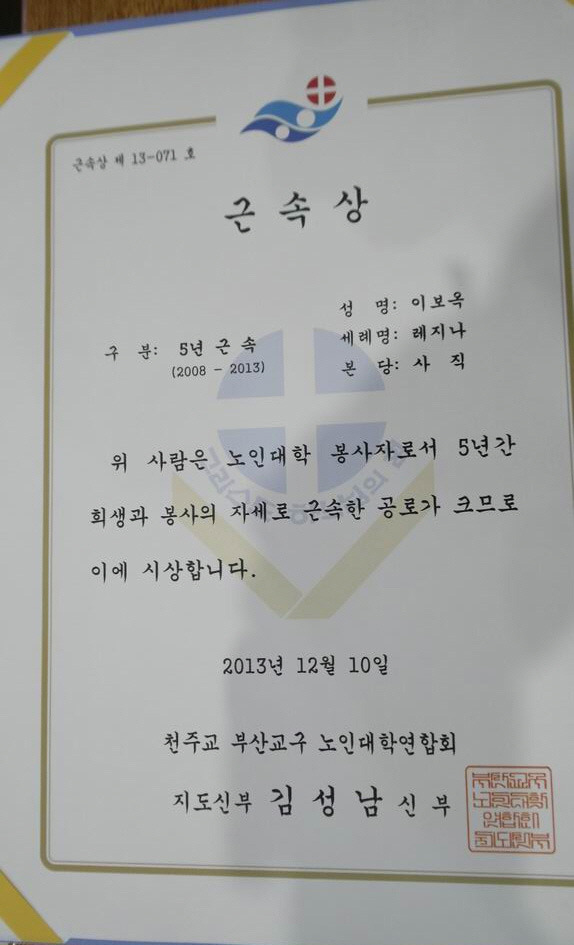 근속상 제 13-071 호
근 속 상
성 명: 이보옥
세례명: 레지나
본 당: 사 직
구 분: 5년 근 속
(2008 - 2013)
위 사람은 노인대학 봉사자로서 5년간
희생과 봉사의 자세로 근속한 공로가 크므로
이에 시상합니다.
2013년 12월 10일
천주교 부산교구 노인대학연합회
지도신부 김 성 남 신 부